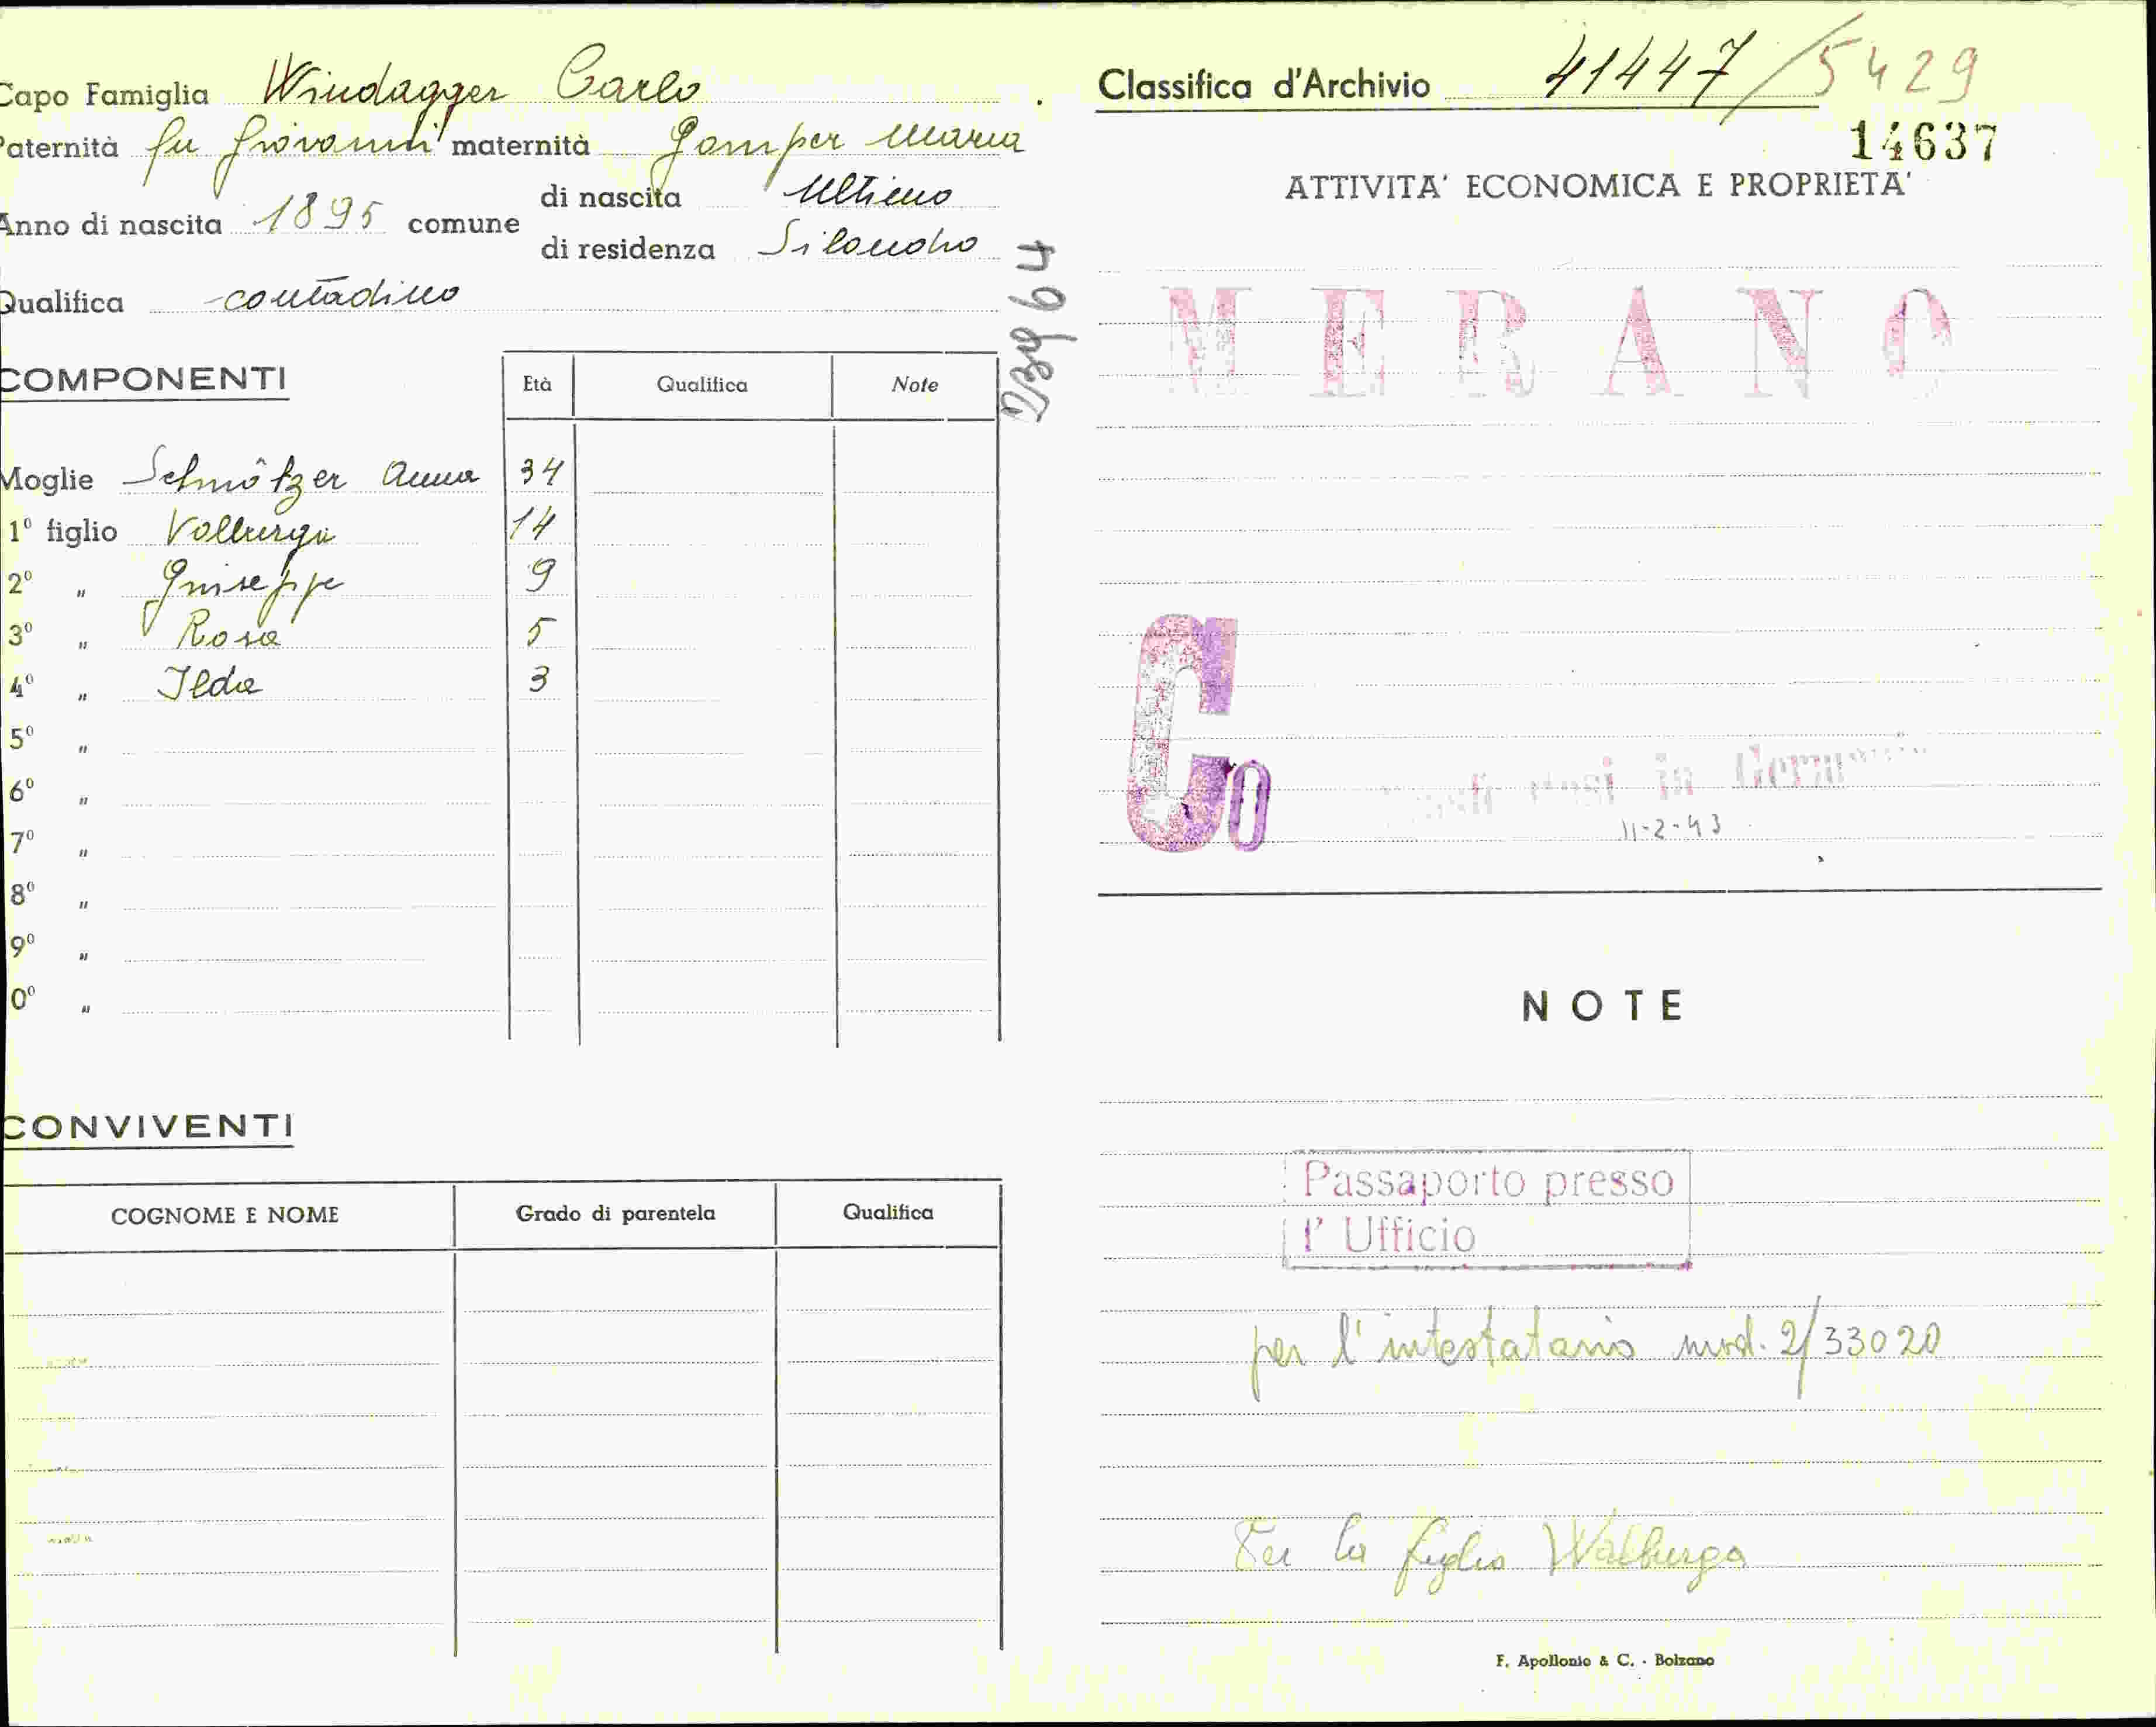 Capo Famiglia Windagger Carlo
Paternità fu Giovanni maternità Gomper Maria
Anno di nascita 1895 comune di nascita Ultimo
di residenza Silandro
Qualifica contadino
COMPONENTI
Età Qualifica Note
Moglie Schmötzer Anna 34
1º figlio Volburga 14
2º " Giuseppe 9
3º " Rosa 5
4º " Ilda 3
5º "
6º "
7º "
8º "
9º "
0º "
CONVIVENTI
COGNOME E NOME Grado di parentela Qualifica
23964
Classifica d'Archivio 41447/5429
14637
ATTIVITA' ECONOMICA E PROPRIETA'
MERANO
Co
in
11-2-43
NOTE
Passaporto presso
l' Ufficio
per l'intestatario mod. 2/33020
Per la figlia Walburga
F. Apollonio & C. - Bolzano